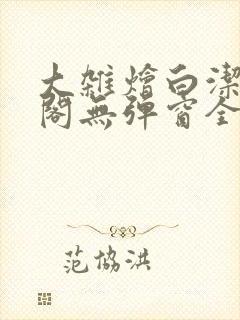 大雜燴白潔
閣無彈窗全
范協洪